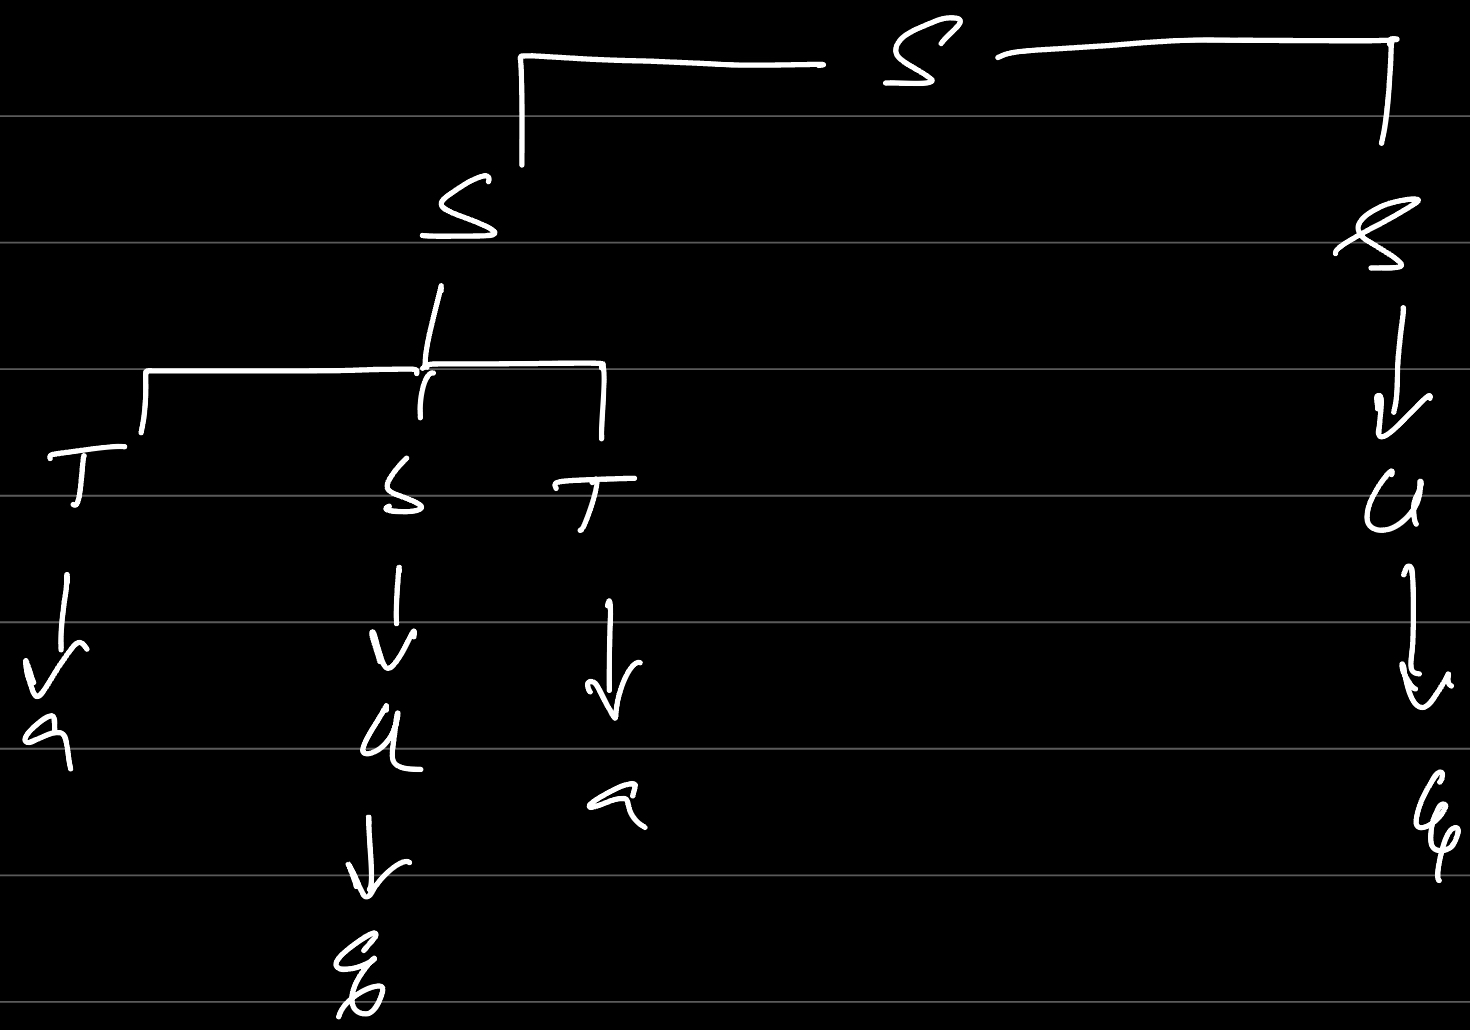 S
S S
T S T U
a U a